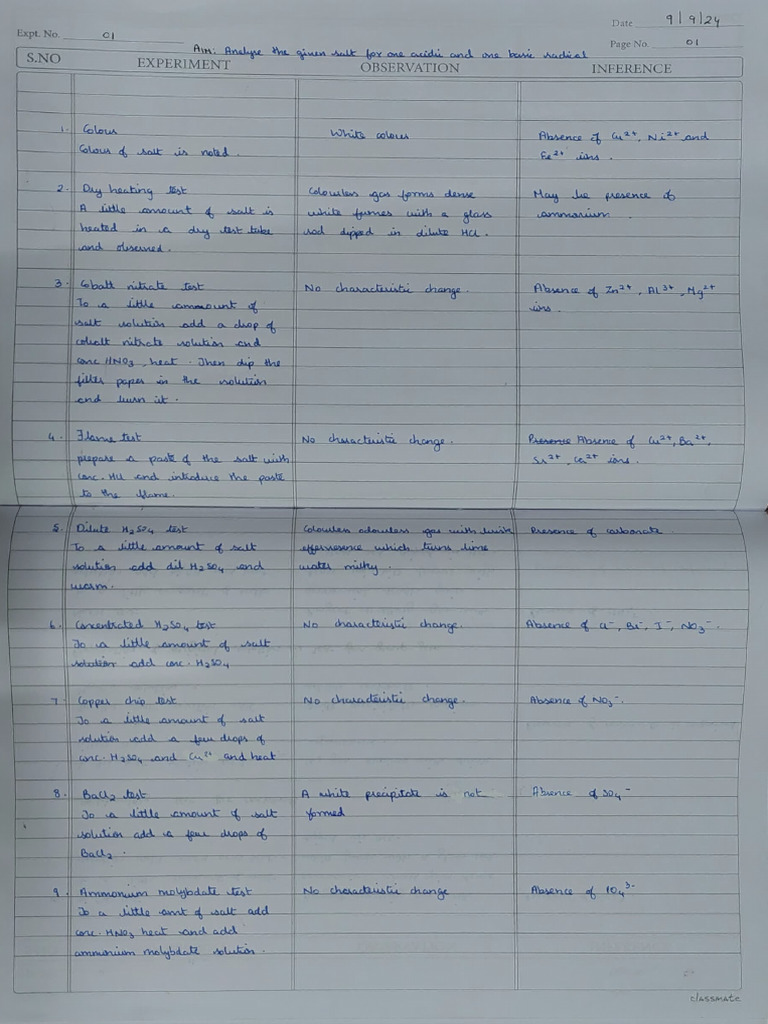 Date 9/9/24
Expt. No. 01
Page No. 01
AIM: Analyse the given salt for one acidic and one basic radical
S.NO EXPERIMENT OBSERVATION INFERENCE
1. Colour
Colour of salt is noted.
White colour
Absence of Cu²⁺, Ni²⁺ and
Fe²⁺ ions.
2. Dry heating test
A little amount of salt is
heated in a dry test tube
and observed.
Colourless gas forms dense
white fumes with a glass
rod dipped in dilute HCl.
May be presence of
ammonium.
3. Cobalt nitrate test
To a little ammount of
salt solution add a drop of
cobalt nitrate solution and
conc HNO₃, heat. Then dip the
filter paper in the solution
and burn it.
No characteristic change.
Absence of Zn²⁺, Al³⁺, Mg²⁺
ions.
4. Flame test
prepare a paste of the salt with
conc. HCl and introduce the paste
to the flame.
No charactéristic change.
Presence Absence of Cu²⁺, Ba²⁺,
Sr²⁺, Ca²⁺ ions.
5. Dilute H₂SO₄ test
To a little amount of salt
solution add dil H₂SO₄ and
warm.
Colourless odourless gas with brisk
effervesence which turns lime
water milky.
Presence of carbonate.
6. Concentrated H₂SO₄ test
To a little amount of salt
solution add conc. H₂SO₄
No characteristic change.
Absence of Cl⁻, Br⁻, I⁻, NO₃⁻.
7. Copper chip test
To a little amount of salt
solution add a few drops of
conc. H₂SO₄ and Cu²⁺ and heat
No characteristic change.
Absence of NO₃⁻.
8. BaCl₂ test
To a little amount of salt
solution add a few drops of
BaCl₂.
A white precipitate is not
formed
Absence of SO₄⁻
9. Ammonium molybdate test
To a little amt of salt add
conc. HNO₃ heat and add
ammonium molybdate solution.
No characteristic change
Absence of PO₄³⁻
classmate